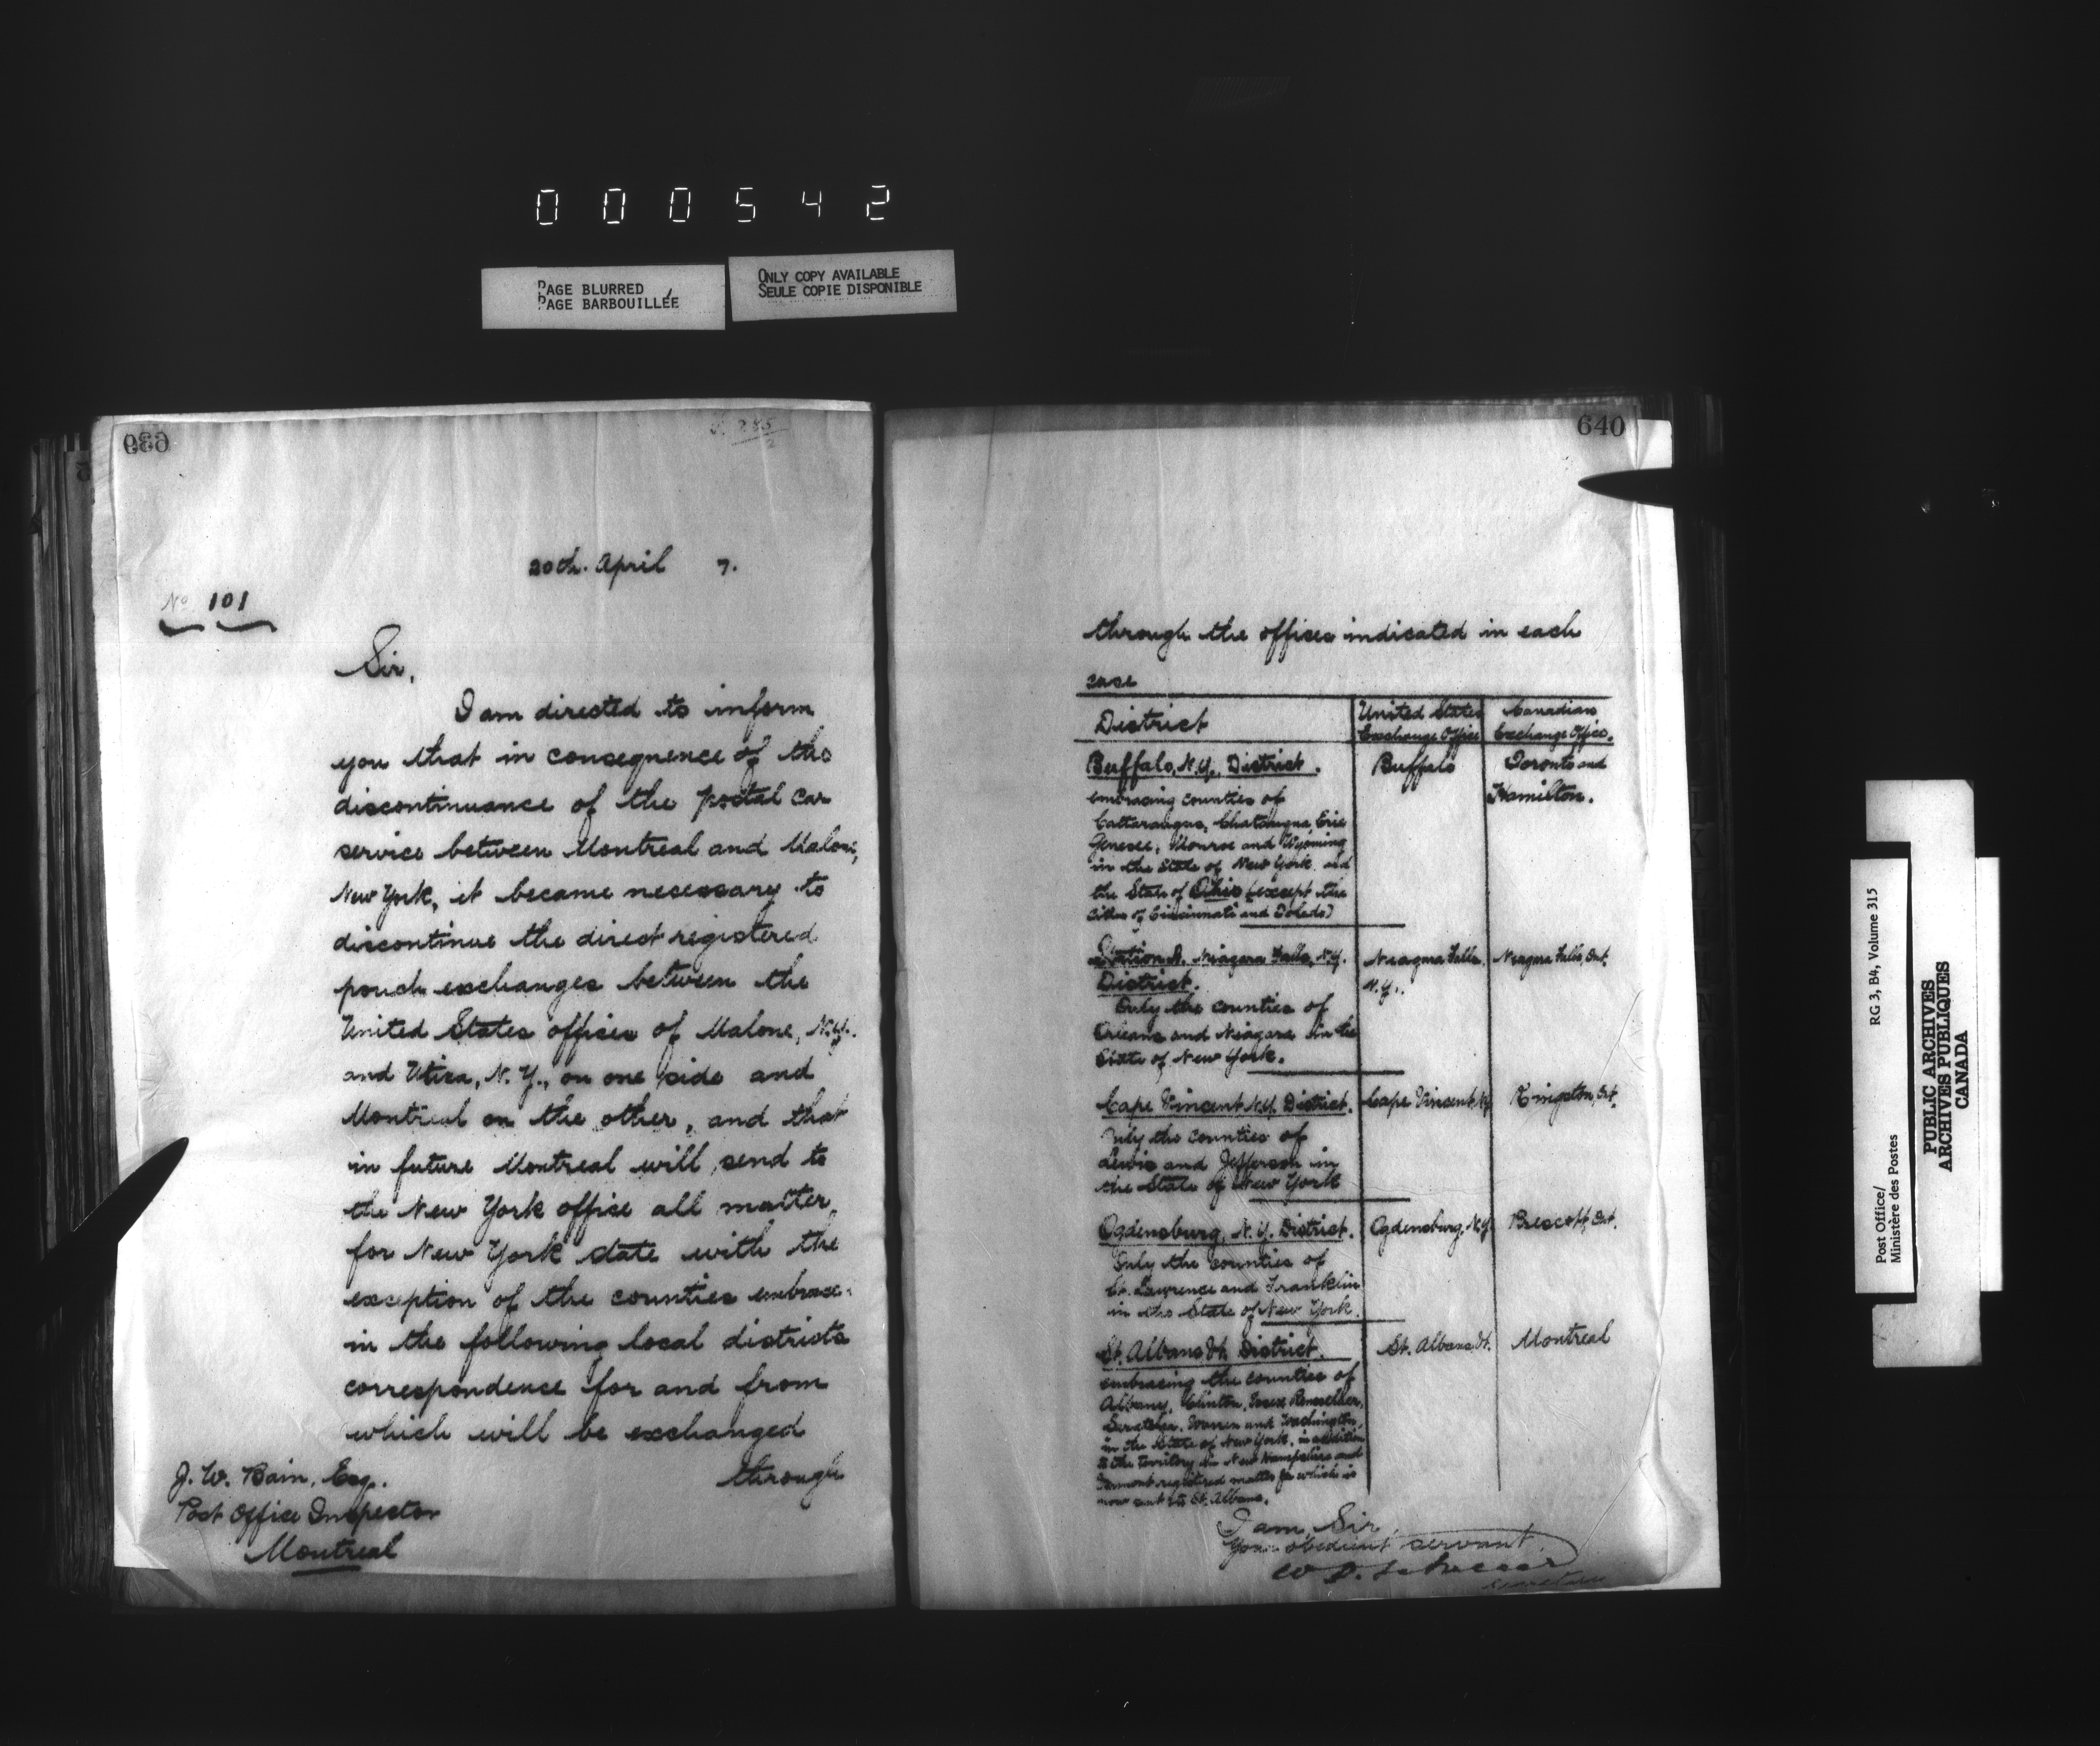 000542
PAGE BLURRED
PAGE BARBOUILLÉE
ONLY COPY AVAILABLE
SEULE COPIE DISPONIBLE
639
285
2
20th. April 7.
No 101
Sir,
I am directed to inform
you that in consequence of the
discontinuance of the postal car
service between Montreal and Malone,
New York, it became necessary to
discontinue the direct registered
pouch exchanges between the
United States offices of Malone, N.Y.
and Utica, N.Y., on one side and
Montreal on the other, and that
in future Montreal will send to
the New York office all matter
for New York State with the
exception of the counties embrace
in the following local districts
correspondence for and from
which will be exchanged
through
J. W. Bain, Esq.
Post Office Inspector
Montreal
640
through the offices indicated in each
case
District United States Exchange Office Canadian Exchange Office.
Buffalo, N.Y., District. Buffalo Toronto and
embracing counties of Hamilton.
Cattaraugus, Chatauqua, Erie
Genesee, Monroe and Wyoming
in the State of New York and
the State of Ohio (except the
cities of Cincinnati and Toledo)
Station A. Niagara Falls, N.Y. Niagara Falls, Niagara Falls, Ont.
District. N.Y.
Only the counties of
Orleans and Niagara in the
State of New York.
Cape Vincent N.Y. District. Cape Vincent, N.Y. Kingston, Ont.
Only the counties of
Lewis and Jefferson in
the State of New York
Ogdensburg, N.Y. District. Ogdensburg, N.Y. Prescott, Ont.
Only the counties of
St. Lawrence and Franklin
in the State of New York.
St. Albans Vt. District. St. Albans Vt. Montreal
embracing the counties of
Albany, Clinton, Essex, Rensselaer,
Saratoga, Warren and Washington,
in the State of New York, in addition
to the territory in New Hampshire and
Vermont registered matter for which is
now sent to St. Albans.
I am, Sir,
Your obedient servant.
W D.
Secretary
Post Office/ RG 3, B4, Volume 315
Ministère des Postes
PUBLIC ARCHIVES
ARCHIVES PUBLIQUES
CANADA